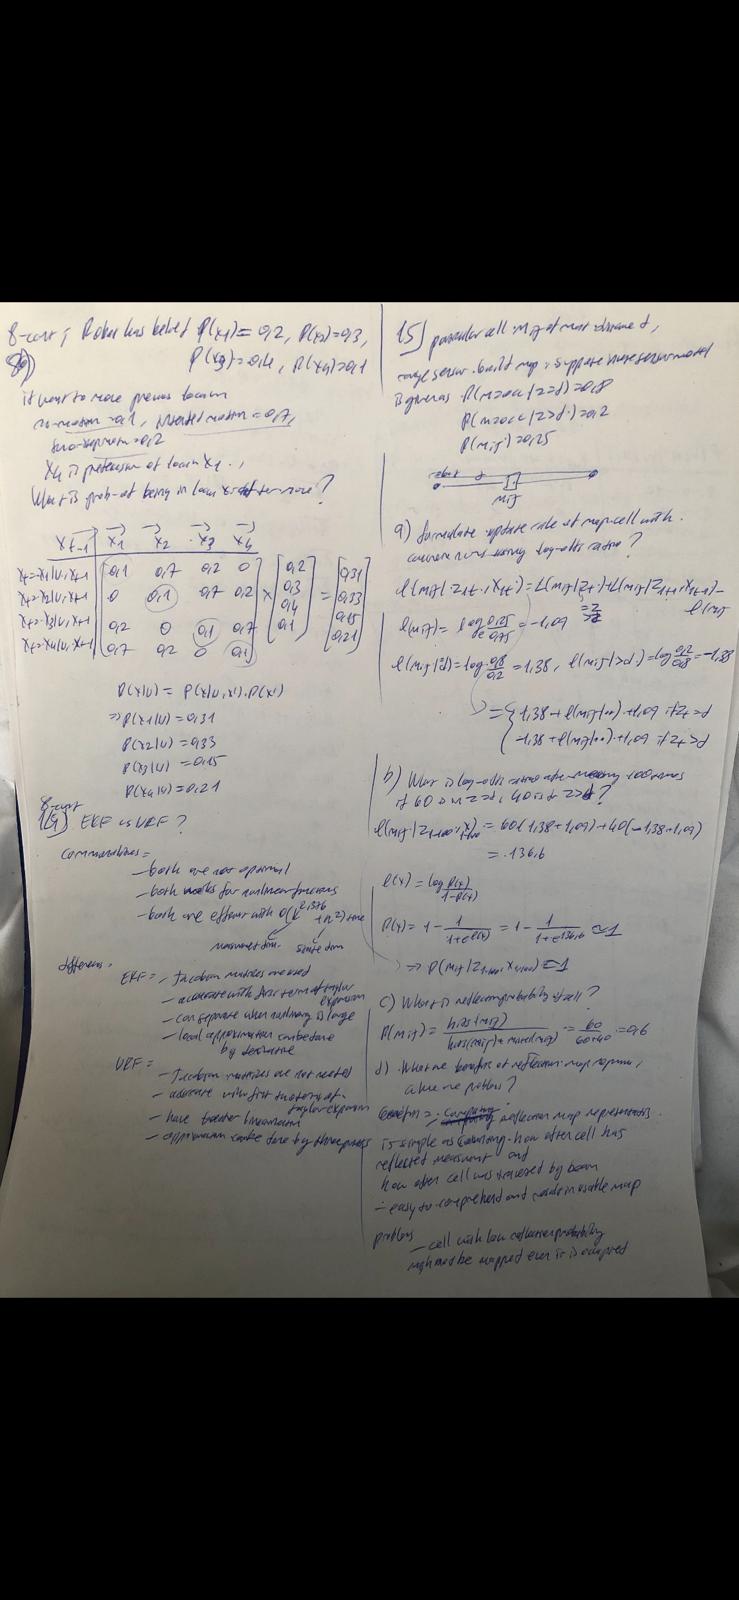 8-cont; Robot has belief P(x1)=0,2, P(x2)=0,3,
P(x3)=0,4, P(x4)=0,1
it want to move previous location
no-motion=0,1, intended motion=0,7,
two-step motion=0,2
x4 is predecessor of location x1.,
What is prob. of being in location x after move?
xt-1 x1 x2 x3 x4
xt=x1|u,xt-1 0,1 0,7 0,2 0 0,2 0,31
xt=x2|u,xt-1 0 0,1 0,7 0,2 × 0,3 = 0,33
xt=x3|u,xt-1 0,2 0 0,1 0,7 0,4 0,15
xt=x4|u,xt-1 0,7 0,2 0 0,1 0,1 0,21
P(x|u) = P(x|u,x').P(x')
=> P(x1|u)=0,31
P(x2|u)=0,33
P(x3|u)=0,15
P(x4|u)=0,21
8-cont
14) EKF vs UKF?
Commonalities=
- both are not optimal
- both works for nonlinear functions
- both are efficient with O(k^2,376 + n^2) time
measurement dim. state dim
differences=
EKF= - Jacobian matrices are used
- accurate with first term of taylor
expansion
- can diverge when nonlinearity is large
- local approximation can be done
by derivative
UKF=
- Jacobian matrices are not needed
- accurate with first two terms of
taylor expansion
- have better linearization
- approximation can be done by
15) particular cell mij at most distance d,
range sensor. build map. suppose inverse sensor model
is given as P(m=occ|z=d)=0,8
P(m=occ|z>d)=0,2
P(mij)=0,25
robot d
mij
a) formulate update rule of map cell with
concrete nums using log-odds ratio?
l(mij|z1:t,x1:t)=l(mij|zt)+l(mij|z1:t-1,x1:t-1)-
l(mij)
l(mij)= log 0,25/0,75 = -1,09
l(mij|d)=log 0,8/0,2 = 1,38, l(mij|>d)=log 0,2/0,8=-1,38
= { 1,38+l(mij|..)+1,09 if zt=d
-1,38+l(mij|..)+1,09 if zt>d
b) What is log-odds ratio after 100 runs
if 60 is z=d, 40 is z>d?
l(mij|z1:100,x1:100)=60(1,38+1,09)+40(-1,38+1,09)
= 136,6
l(x)=log P(x)/1-P(x)
P(x)=1- 1/1+e^l(x) = 1- 1/1+e^136,6 ≈1
=> P(mij|z1:100,x1:100)≅1
c) What is reflection probability of cell?
P(mij)= hits(mij)/hits(mij)+misses(mij) = 60/60+40=0,6
d) What are benefits of reflection map repres.,
what are problems?
benefits=; reflection map representation
is simple as counting how often cell has
reflected measurement and
how often cell was traversed by beam
- easy to comprehend and results in usable map
problems
- cell with low reflection probability
might not be mapped even it is occupied